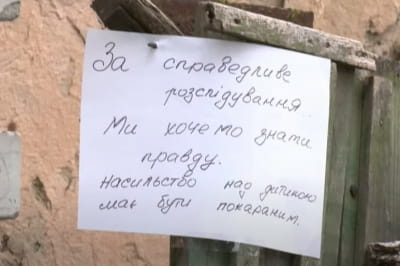 За справедливе
розслідування
Ми хочемо знати
правду.
насильство над дитиною
має бути покараним.